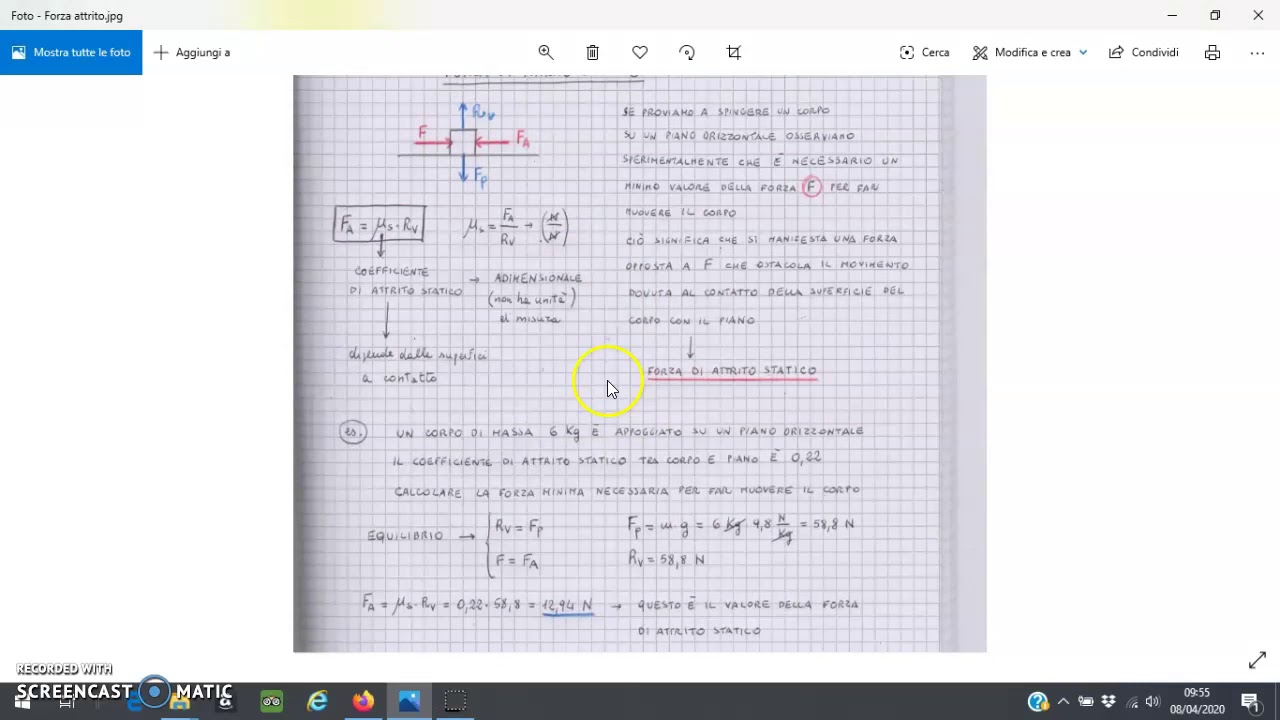 Foto - Forza attrito.jpg
Mostra tutte le foto
Aggiungi a
Cerca
Modifica e crea
Condividi
Rv
F
FA
Fp
FA = μs · Rv
μs = FA/Rv → (N/N)
COEFFICIENTE
DI ATTRITO STATICO
→ ADIMENSIONALE
(non ha unità
di misura
dipende dalle superfici
a contatto
SE PROVIAMO A SPINGERE UN CORPO
SU UN PIANO ORIZZONTALE OSSERVIAMO
SPERIMENTALMENTE CHE È NECESSARIO UN
MINIMO VALORE DELLA FORZA F PER FAR
MUOVERE IL CORPO
CIÒ SIGNIFICA CHE SI MANIFESTA UNA FORZA
OPPOSTA A F CHE OSTACOLA IL MOVIMENTO
DOVUTA AL CONTATTO DELLA SUPERFICIE DEL
CORPO CON IL PIANO
FORZA DI ATTRITO STATICO
es. UN CORPO DI MASSA 6 Kg È APPOGGIATO SU UN PIANO ORIZZONTALE
IL COEFFICIENTE DI ATTRITO STATICO TRA CORPO E PIANO È 0,22
CALCOLARE LA FORZA MINIMA NECESSARIA PER FAR MUOVERE IL CORPO
EQUILIBRIO →
Rv = Fp
F = FA
Fp = m·g = 6 Kg 9,8 N/Kg = 58,8 N
Rv = 58,8 N
FA = μs · Rv = 0,22 · 58,8 = 12,94 N → QUESTO È IL VALORE DELLA FORZA
DI ATTRITO STATICO
RECORDED WITH
SCREENCAST MATIC
09:55
08/04/2020